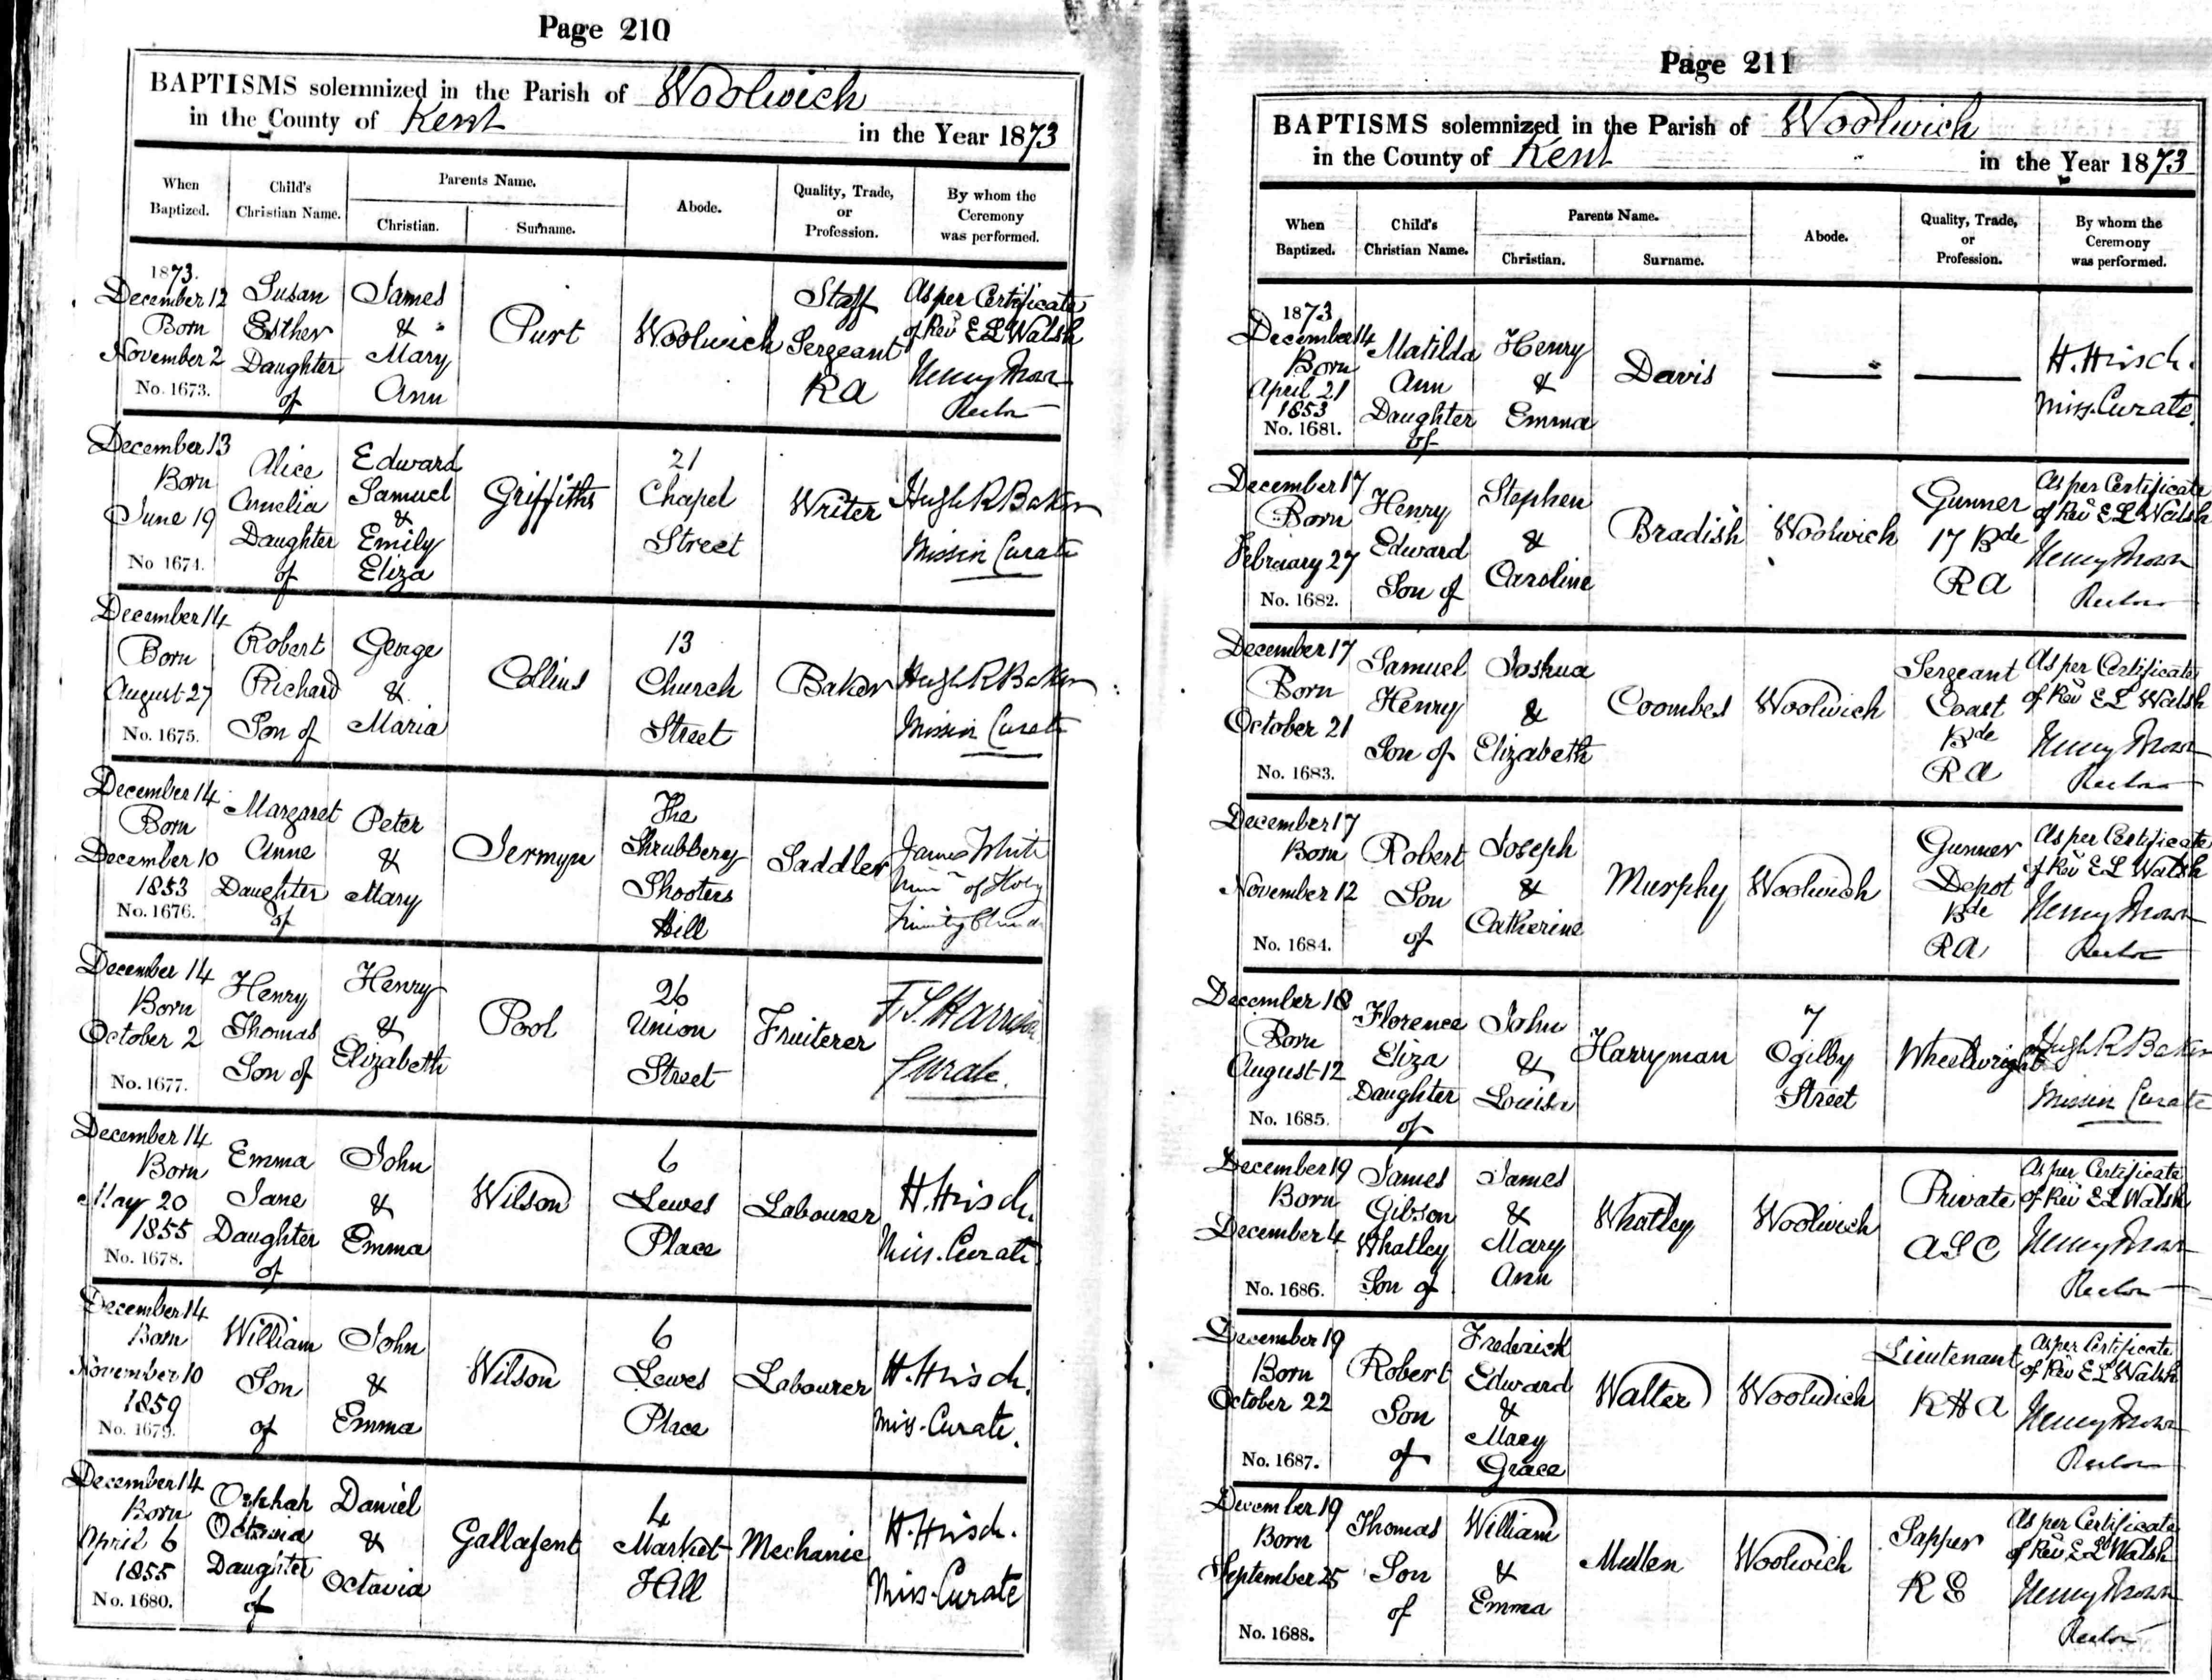 Page 210
BAPTISMS solemnized in the Parish of Woolwich
in the County of Kent in the Year 1873
When Baptized.
Child's Christian Name.
Parents Name.
Christian.
Surname.
Abode.
Quality, Trade, or Profession.
By whom the Ceremony was performed.
1873.
December 12
Born
November 2
No. 1673.
Susan
Esther
Daughter
of
James
&
Mary
Ann
Purt
Woolwich
Staff
Sergeant
R A
As per Certificate
of Rev E L Walsh
Henry Brown
Rector
December 13
Born
June 19
No 1674.
Alice
Amelia
Daughter
of
Edward
Samuel
&
Emily
Eliza
Griffiths
21
Chapel
Street
Writer
Hugh R Baker
Mission Curate
December 14
Born
August 27
No. 1675.
Robert
Richard
Son of
George
&
Maria
Collins
13
Church
Street
Baker
Hugh R Baker
Mission Curate
December 14
Born
December 10
1853
No. 1676.
Margaret
Anne
Daughter
of
Peter
&
Mary
Jermyn
The
Shrubbery
Shooters
Hill
Saddler
James White
Minr of Holy
Trinity Church
December 14
Born
October 2
No. 1677.
Henry
Thomas
Son of
Henry
&
Elizabeth
Pool
26
Union
Street
Fruiterer
Harrison
Curate.
December 14
Born
May 20
1855
No. 1678.
Emma
Jane
Daughter
of
John
&
Emma
Wilson
6
Lewes
Place
Labourer
H. Hirsch.
Miss. Curate.
December 14
Born
November 10
1859
No. 1679.
William
Son
of
John
&
Emma
Wilson
6
Lewes
Place
Labourer
H. Hirsch.
Miss. Curate.
December 14
Born
April 6
1855
No. 1680.
Orphah
Octavia
Daughter
of
Daniel
&
Octavia
Gallafent
4
Market
Hill
Mechanic
H. Hirsch.
Miss. Curate
Page 211
BAPTISMS solemnized in the Parish of Woolwich
in the County of Kent in the Year 1873
When Baptized.
Child's Christian Name.
Parents Name.
Christian.
Surname.
Abode.
Quality, Trade, or Profession.
By whom the Ceremony was performed.
1873
December 14
Born
April 21
1853
No. 1681.
Matilda
Ann
Daughter
of
Henry
&
Emma
Davis
H. Hirsch.
Miss. Curate.
December 17
Born
February 27
No. 1682.
Henry
Edward
Son of
Stephen
&
Caroline
Bradish
Woolwich
Gunner
17 Bde
R A
As per Certificate
of Rev E L Walsh
Henry Brown
Rector
December 17
Born
October 21
No. 1683.
Samuel
Henry
Son of
Joshua
&
Elizabeth
Coombes
Woolwich
Sergeant
Coast
Bde
R A
As per Certificate
of Rev E L Walsh
Henry Brown
Rector
December 17
Born
November 12
No. 1684.
Robert
Son
of
Joseph
&
Catherine
Murphy
Woolwich
Gunner
Depot
Bde
R A
As per Certificate
of Rev E L Walsh
Henry Brown
Rector
December 18
Born
August 12
No. 1685.
Florence
Eliza
Daughter
of
John
&
Louisa
Harryman
7
Ogilby
Street
Wheelwright
Hugh R Baker
Mission Curate
December 19
Born
December 4
No. 1686.
James
Gibson
Whatley
Son of
James
&
Mary
Ann
Whatley
Woolwich
Private
A S C
As per Certificate
of Rev E L Walsh
Henry Brown
Rector
December 19
Born
October 22
No. 1687.
Robert
Son
of
Frederick
Edward
&
Mary
Grace
Walter
Woolwich
Lieutenant
R H A
As per Certificate
of Rev E L Walsh
Henry Brown
Rector
December 19
Born
September 25
No. 1688.
Thomas
Son
of
William
&
Emma
Mullen
Woolwich
Sapper
R E
As per Certificate
of Rev E L Walsh
Henry Brown
Rector